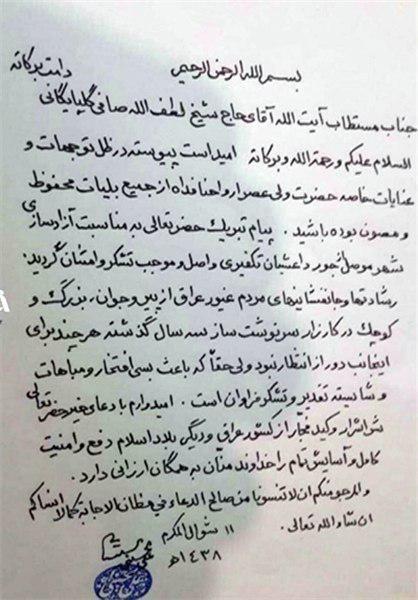 بسم الله الرحمن الرحیم
دامت برکاته
جناب مستطاب آیت الله آقای حاج شیخ لطف الله صافی گلپایگانی
السلام علیکم ورحمة الله وبرکاته امیداست پیوسته در ظل توجهات و
عنایات خاصه حضرت ولی عصر ارواحنا فداه از جمیع بلیات محفوظ
و مصون بوده باشید . پیام تبریک حضرتعالی به مناسبت آزادسازی
شهر موصل از جور داعشیان تکفیری واصل و موجب تشکر و امتنان گردید.
رشادتها و جانفشانیهای مردم غیور عراق از پیر و جوان ، بزرگ و
کوچک در کارزار سرنوشت ساز سه سال گذشته هر چند برای
اینجانب دور از انتظار نبود ولی حقاً که باعث بسی افتخار و مباهات
و شایسته تقدیر و تشکر فراوان است . امیدوارم با دعای خیر حضرتعالی
شر اشرار وکید فجّار از کشور عراق و دیگر بلاد اسلام دفع و امنیت
کامل و آسایش تمام را خداوند منّان به همگان ارزانی دارد .
والمرجو منکم ان لا تنسونا من صالح الدعاء فی مظان الاجابة کما لا انساکم
ان شاء الله تعالی .
١١ شوال المکرم
١٤٣٨هـ